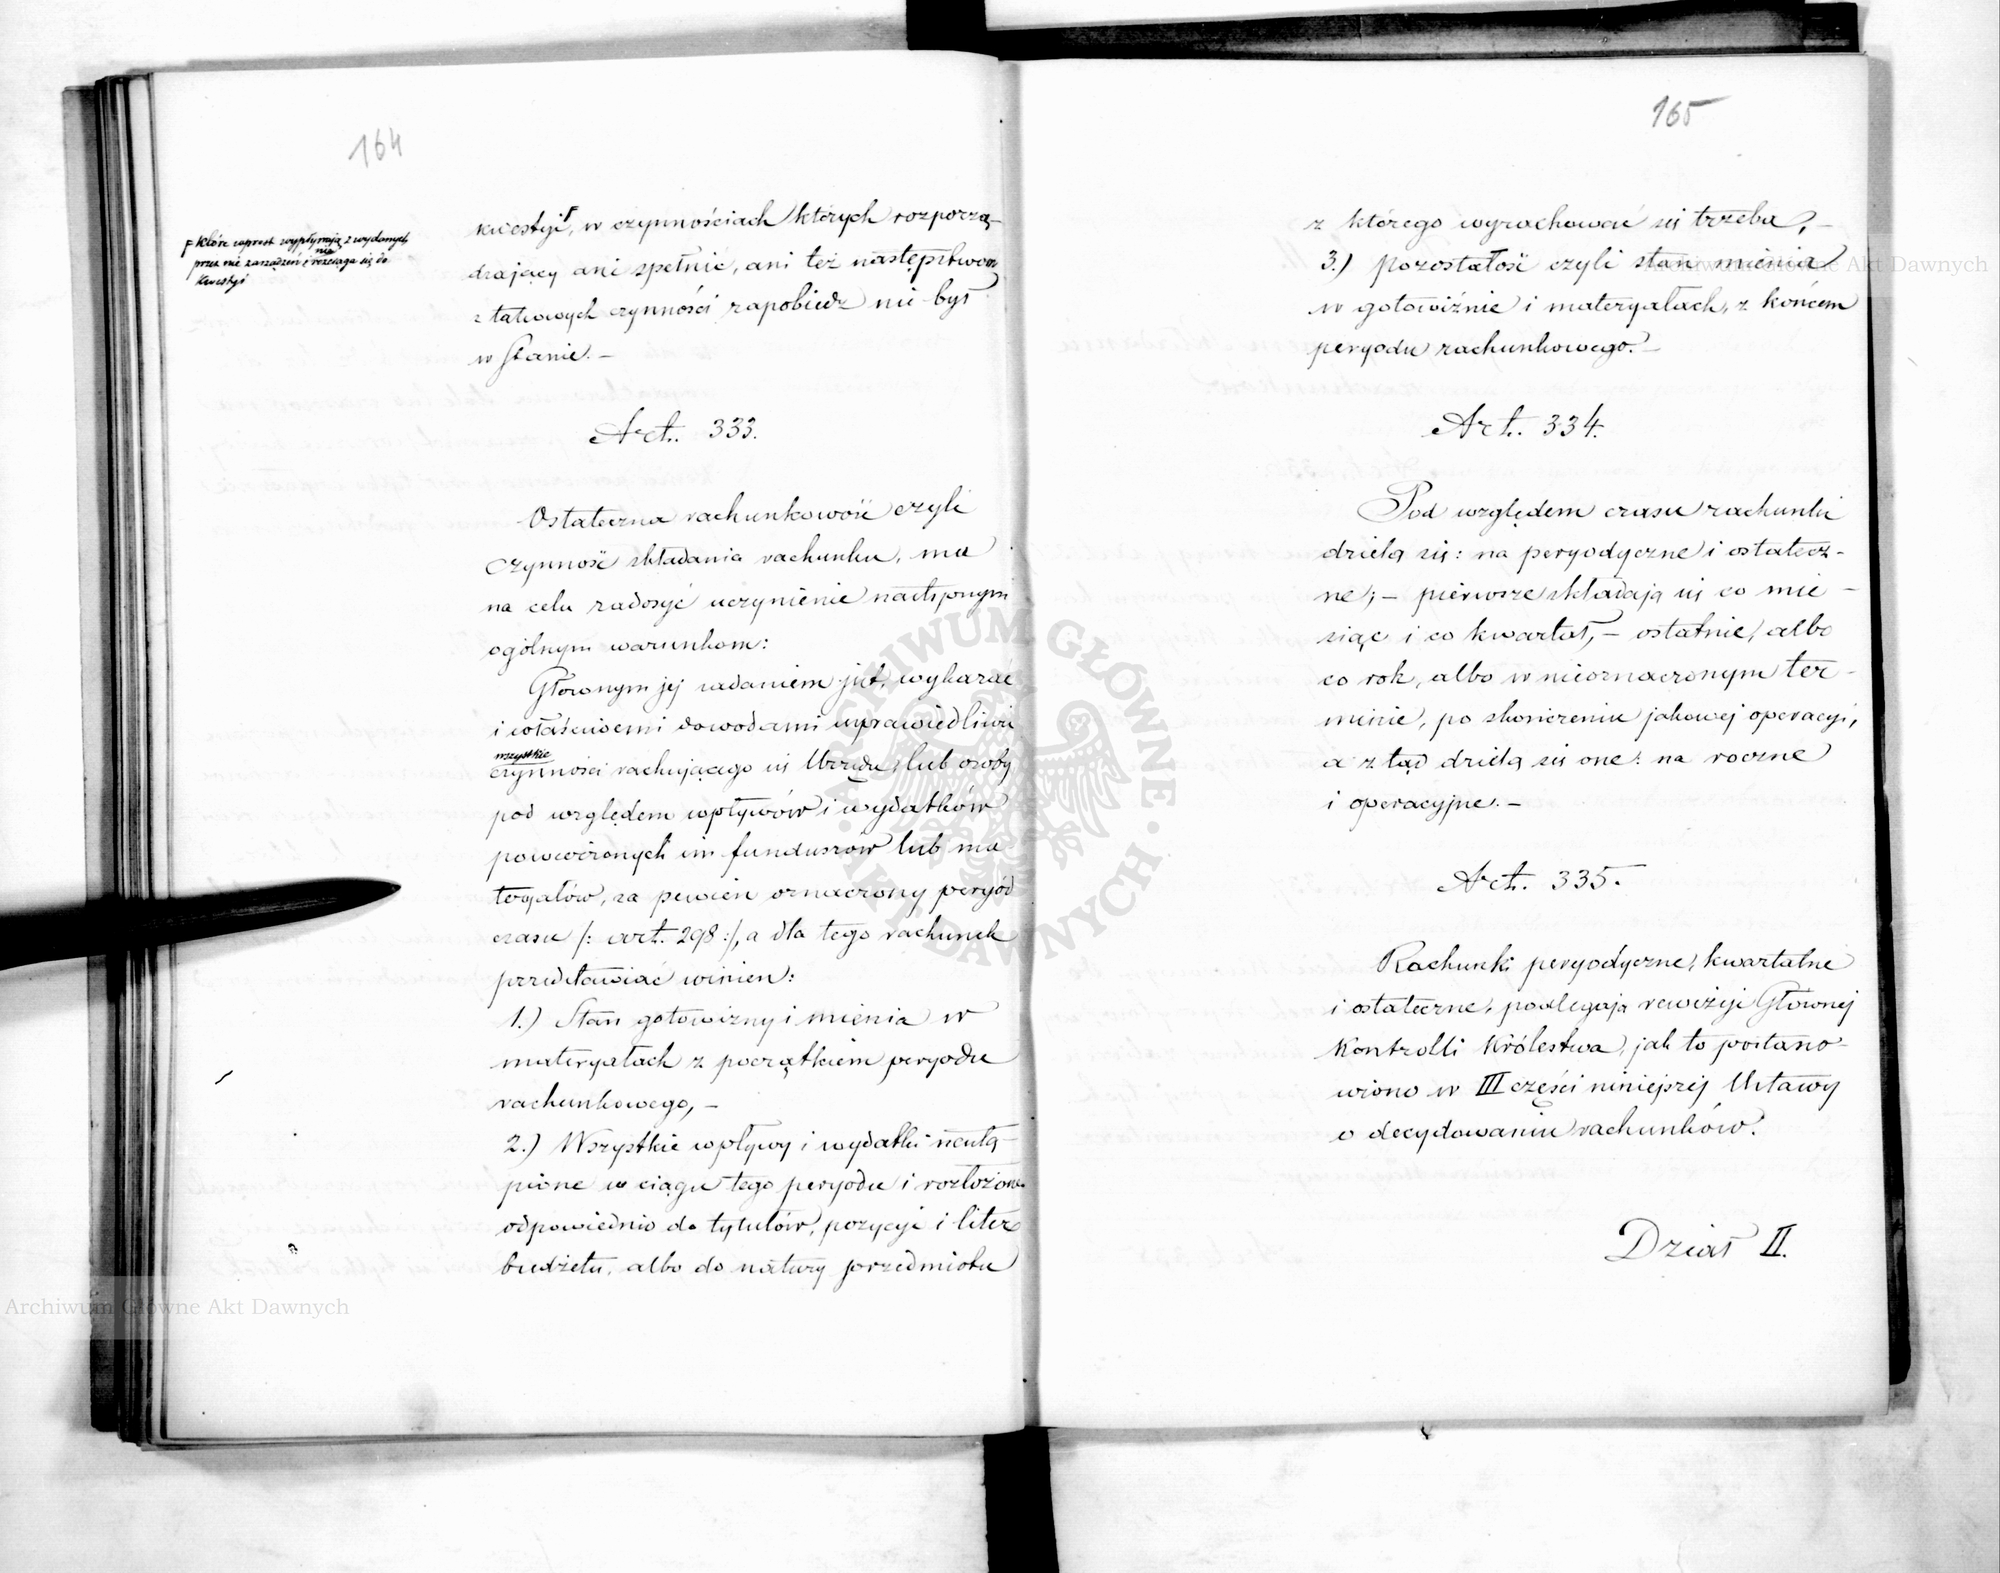 164
Ғ które wprost wypływają z wydanych
przez nie zarządzeń i nie rozciąga się do
kwestyi
kwestyi Ғ, w czynnościach których rozporzą-
dzający ani spełnić, ani też następstwom
z takowych czynności zapobiedz nie był
w stanie. –
Art. 333.
Ostateczna rachunkowość czyli
czynność składania rachunku, ma
na celu zadosyć uczynienie następnym
ogólnym warunkom:
Głównym jej zadaniem jest, wykazać
i właściwemi dowodami usprawiedliwić
wszystkie
czynności rachującego się Urzędu, lub osoby
pod względem wpływów i wydatków
powierzonych im funduszów lub ma
teryałów, za pewien oznaczony peryód
czasu /: art. 298 :/, a dla tego rachunek
przedstawiać winien:
1.) Stan gotowizny i mienia w
materyałach z początkiem peryodu
rachunkowego, –
2.) Wszystkie wpływy i wydatki nastą-
pione w ciągu tego peryodu i rozłożone
odpowiednio do tytułów, pozycyi i liter
budżetu, albo do natury przedmiotu
165
z którego wyrachować się trzeba, –
3.) pozostałość czyli stan mienia
w gotowiźnie i materyałach, z końcem
peryodu rachunkowego. –
Art. 334.
Pod względem czasu rachunki
dzielą się: na peryodyczne i ostatecz-
ne; – pierwsze składają się co mie-
siąc i co kwartał, – ostatnie, albo
co rok, albo w nieoznaczonym ter-
minie, po skończeniu jakowej operacyi,
a z tąd dzielą się one: na roczne
i operacyjne. –
Art. 335.
Rachunki peryodyczne, kwartalne
i ostateczne, podlegają rewizyi Głównej
Kontrolli Królestwa, jak to postano-
wiono w III części niniejszej Ustawy
o decydowaniu rachunków.
Dział II.
Archiwum Główne Akt Dawnych
Archiwum Główne Akt Dawnych
ARCHIWUM GŁÓWNE · AKT DAWNYCH ·